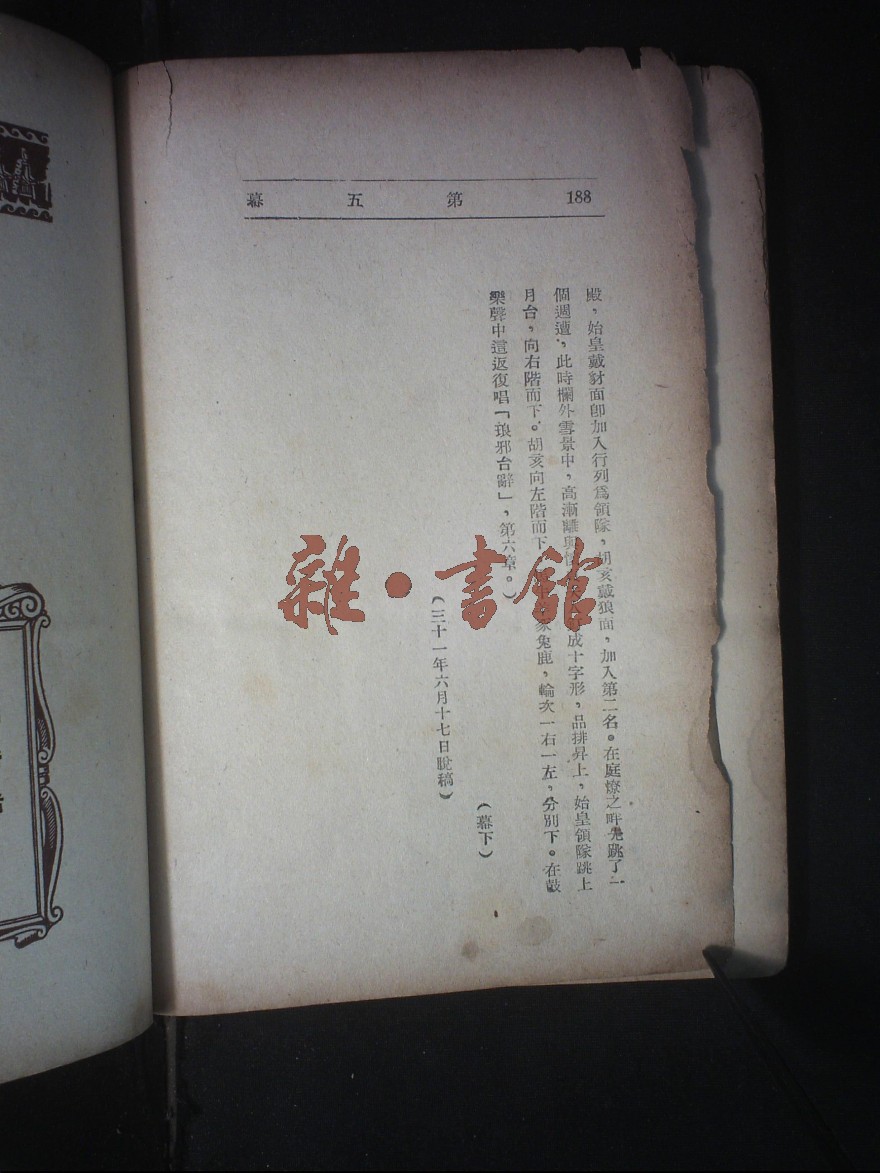 188 第五幕
殿，始皇戴豺面卽加入行列爲領隊，胡亥戴狼面，加入第二名。在庭燎之畔先跳了一
個週遭，此時欄外雪景中，高漸離與懷成十字形，品排昇上，始皇領隊跳上
月台，向右階而下。胡亥向左階而下兔鹿，輪次一右一左，分別下。在鼓
樂聲中這返復唱「琅邪台辭」，第六章。）
（幕下）
（三十一年六月十七日脫稿）
雜·書館